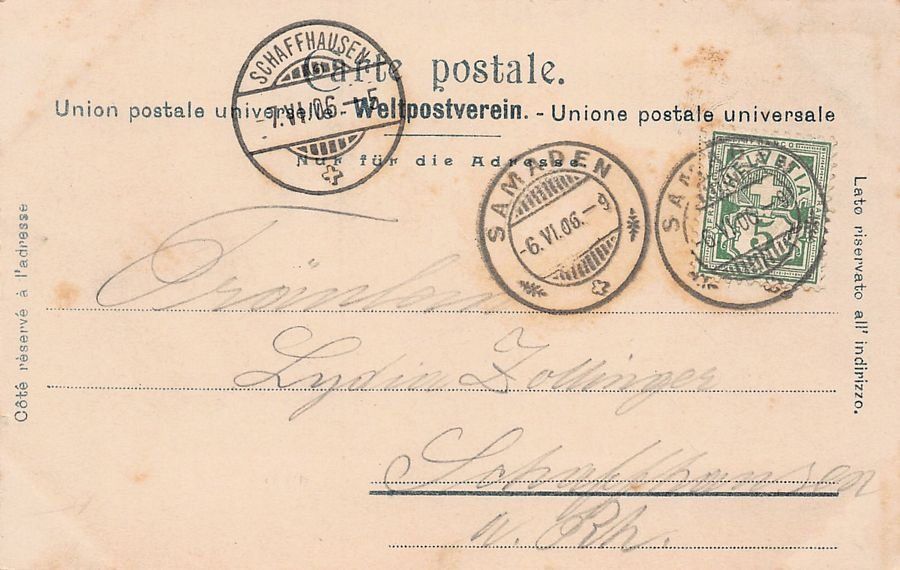 Carte postale.
Union postale universelle. - Weltpostverein. - Unione postale universale
Nur für die Adresse.
SCHAFFHAUSEN
-7.VI.06.-5
SAMADEN
-6.VI.06.-9
SAMADEN
-6.VI.06.-9
FRANCO
HELVETIA
5
Côté réservé à l'adresse
Lato riservato all' indirizzo.
Fräulein
Lydia Zollinger
Schaffhausen
a. Rh.